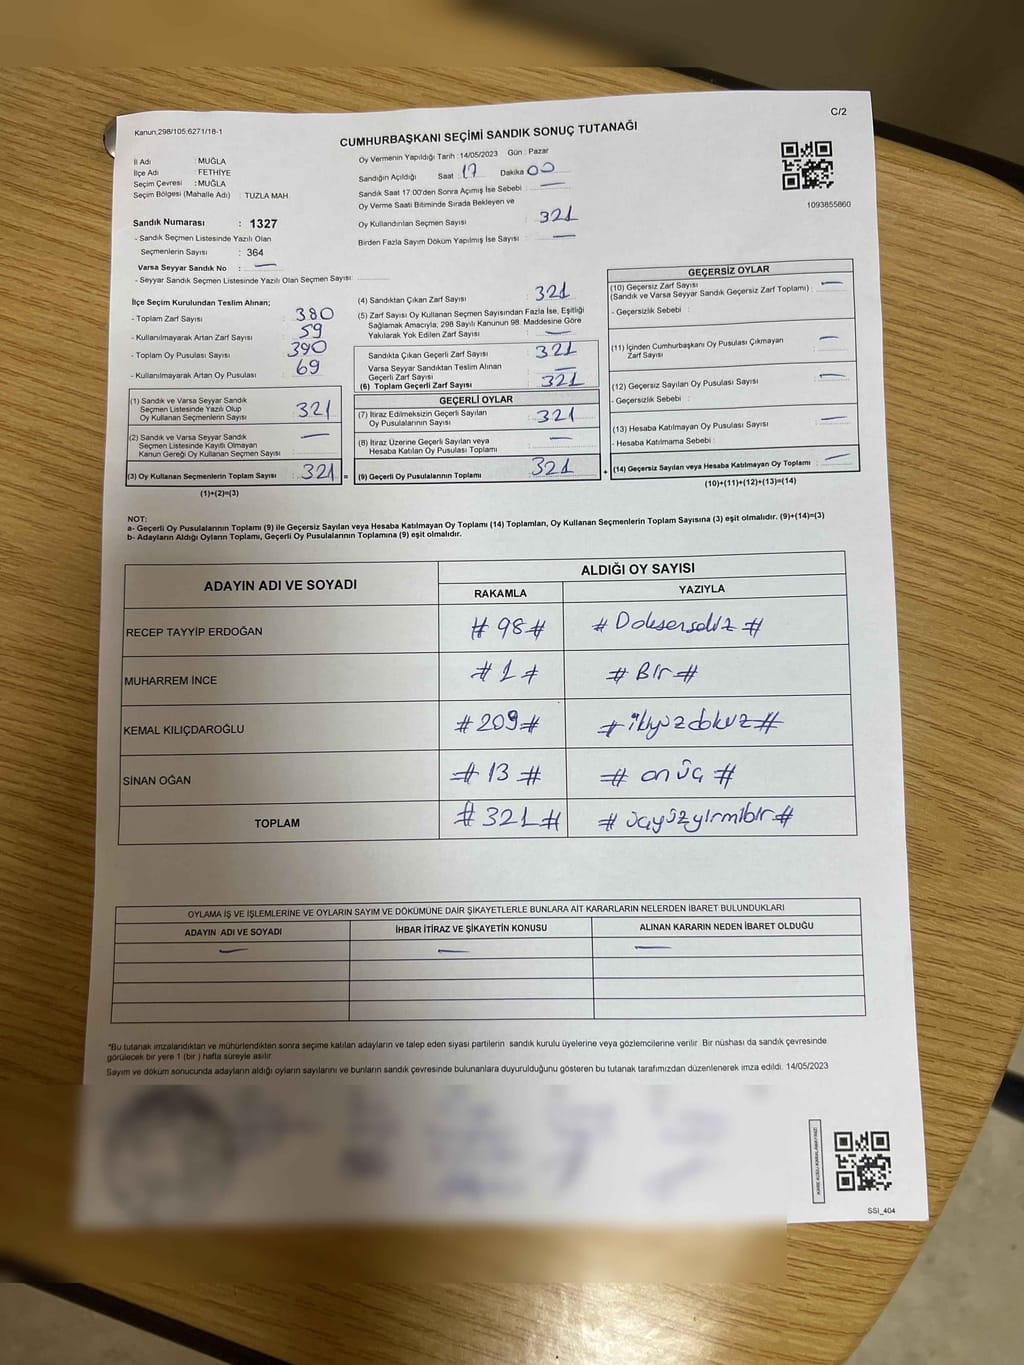 C/2
Kanun,298/105,6271/18-1
CUMHURBAŞKANI SEÇİMİ SANDIK SONUÇ TUTANAĞI
İl Adı : MUĞLA
İlçe Adı : FETHİYE
Seçim Çevresi : MUĞLA
Seçim Bölgesi (Mahalle Adı) : TUZLA MAH.
Sandık Numarası : 1327
- Sandık Seçmen Listesinde Yazılı Olan
Seçmenlerin Sayısı : 364
Varsa Seyyar Sandık No : —
- Seyyar Sandık Seçmen Listesinde Yazılı Olan Seçmen Sayısı:
Oy Vermenin Yapıldığı Tarih :14/05/2023 Gün : Pazar
Sandığın Açıldığı Saat : 17 Dakika 00
Sandık Saat 17.00'den Sonra Açımış İse Sebebi : —
Oy Verme Saati Bitiminde Sırada Bekleyen ve
Oy Kullandırılan Seçmen Sayısı : 321
Birden Fazla Sayım Döküm Yapılmış İse Sayısı : —
1093855860
İlçe Seçim Kurulundan Teslim Alınan;
- Toplam Zarf Sayısı : 380
- Kullanılmayarak Artan Zarf Sayısı : 59
- Toplam Oy Pusulası Sayısı : 390
- Kullanılmayarak Artan Oy Pusulası : 69
(1) Sandık ve Varsa Seyyar Sandık
Seçmen Listesinde Yazılı Olup
Oy Kullanan Seçmenlerin Sayısı : 321
(2) Sandık ve Varsa Seyyar Sandık
Seçmen Listesinde Kayıtlı Olmayan
Kanun Gereği Oy Kullanan Seçmen Sayısı : —
(3) Oy Kullanan Seçmenlerin Toplam Sayısı : 321 =
(1)+(2)=(3)
(4) Sandıktan Çıkan Zarf Sayısı : 321
(5) Zarf Sayısı Oy Kullanan Seçmen Sayısından Fazla İse, Eşitliği
Sağlamak Amacıyla, 298 Sayılı Kanunun 98. Maddesine Göre
Yakılarak Yok Edilen Zarf Sayısı : —
Sandıkta Çıkan Geçerli Zarf Sayısı : 321
Varsa Seyyar Sandıktan Teslim Alınan
Geçerli Zarf Sayısı : —
(6) Toplam Geçerli Zarf Sayısı : 321
GEÇERLİ OYLAR
(7) İtiraz Edilmeksizin Geçerli Sayılan
Oy Pusulalarının Sayısı : 321
(8) İtiraz Üzerine Geçerli Sayılan veya
Hesaba Katılan Oy Pusulası Toplamı : —
(9) Geçerli Oy Pusulalarının Toplamı : 321 +
GEÇERSİZ OYLAR
(10) Geçersiz Zarf Sayısı : —
(Sandık ve Varsa Seyyar Sandık Geçersiz Zarf Toplamı) :
- Geçersizlik Sebebi :
(11) İçinden Cumhurbaşkanı Oy Pusulası Çıkmayan
Zarf Sayısı : —
(12) Geçersiz Sayılan Oy Pusulası Sayısı : —
- Geçersizlik Sebebi :
(13) Hesaba Katılmayan Oy Pusulası Sayısı : —
- Hesaba Katılmama Sebebi :
(14) Geçersiz Sayılan veya Hesaba Katılmayan Oy Toplamı : —
(10)+(11)+(12)+(13)=(14)
NOT:
a- Geçerli Oy Pusulalarının Toplamı (9) ile Geçersiz Sayılan veya Hesaba Katılmayan Oy Toplamı (14) Toplamları, Oy Kullanan Seçmenlerin Toplam Sayısına (3) eşit olmalıdır. (9)+(14)=(3)
b- Adayların Aldığı Oyların Toplamı, Geçerli Oy Pusulalarının Toplamına (9) eşit olmalıdır.
ADAYIN ADI VE SOYADI
ALDIĞI OY SAYISI
RAKAMLA YAZIYLA
RECEP TAYYİP ERDOĞAN # 98 # # Doksansekiz #
MUHARREM İNCE # 1 # # Bir #
KEMAL KILIÇDAROĞLU # 209 # # ikiyüzdokuz #
SİNAN OĞAN # 13 # # onüç #
TOPLAM # 321 # # üçyüzyirmibir #
OYLAMA İŞ VE İŞLEMLERİNE VE OYLARIN SAYIM VE DÖKÜMÜNE DAİR ŞİKAYETLERLE BUNLARA AİT KARARLARIN NELERDEN İBARET BULUNDUKLARI
ADAYIN ADI VE SOYADI İHBAR İTİRAZ VE ŞİKAYETİN KONUSU ALINAN KARARIN NEDEN İBARET OLDUĞU
— — —
*Bu tutanak imzalandıktan ve mühürlendikten sonra seçime katılan adayların ve talep eden siyasi partilerin sandık kurulu üyelerine veya gözlemcilerine verilir. Bir nüshası da sandık çevresinde
görülecek bir yere 1 (bir ) hafta süreyle asılır.
Sayım ve döküm sonucunda adayların aldığı oyların sayılarını ve bunların sandık çevresinde bulunanlara duyurulduğunu gösteren bu tutanak tarafımızdan düzenlenerek imza edildi. 14/05/2023
SSI_404